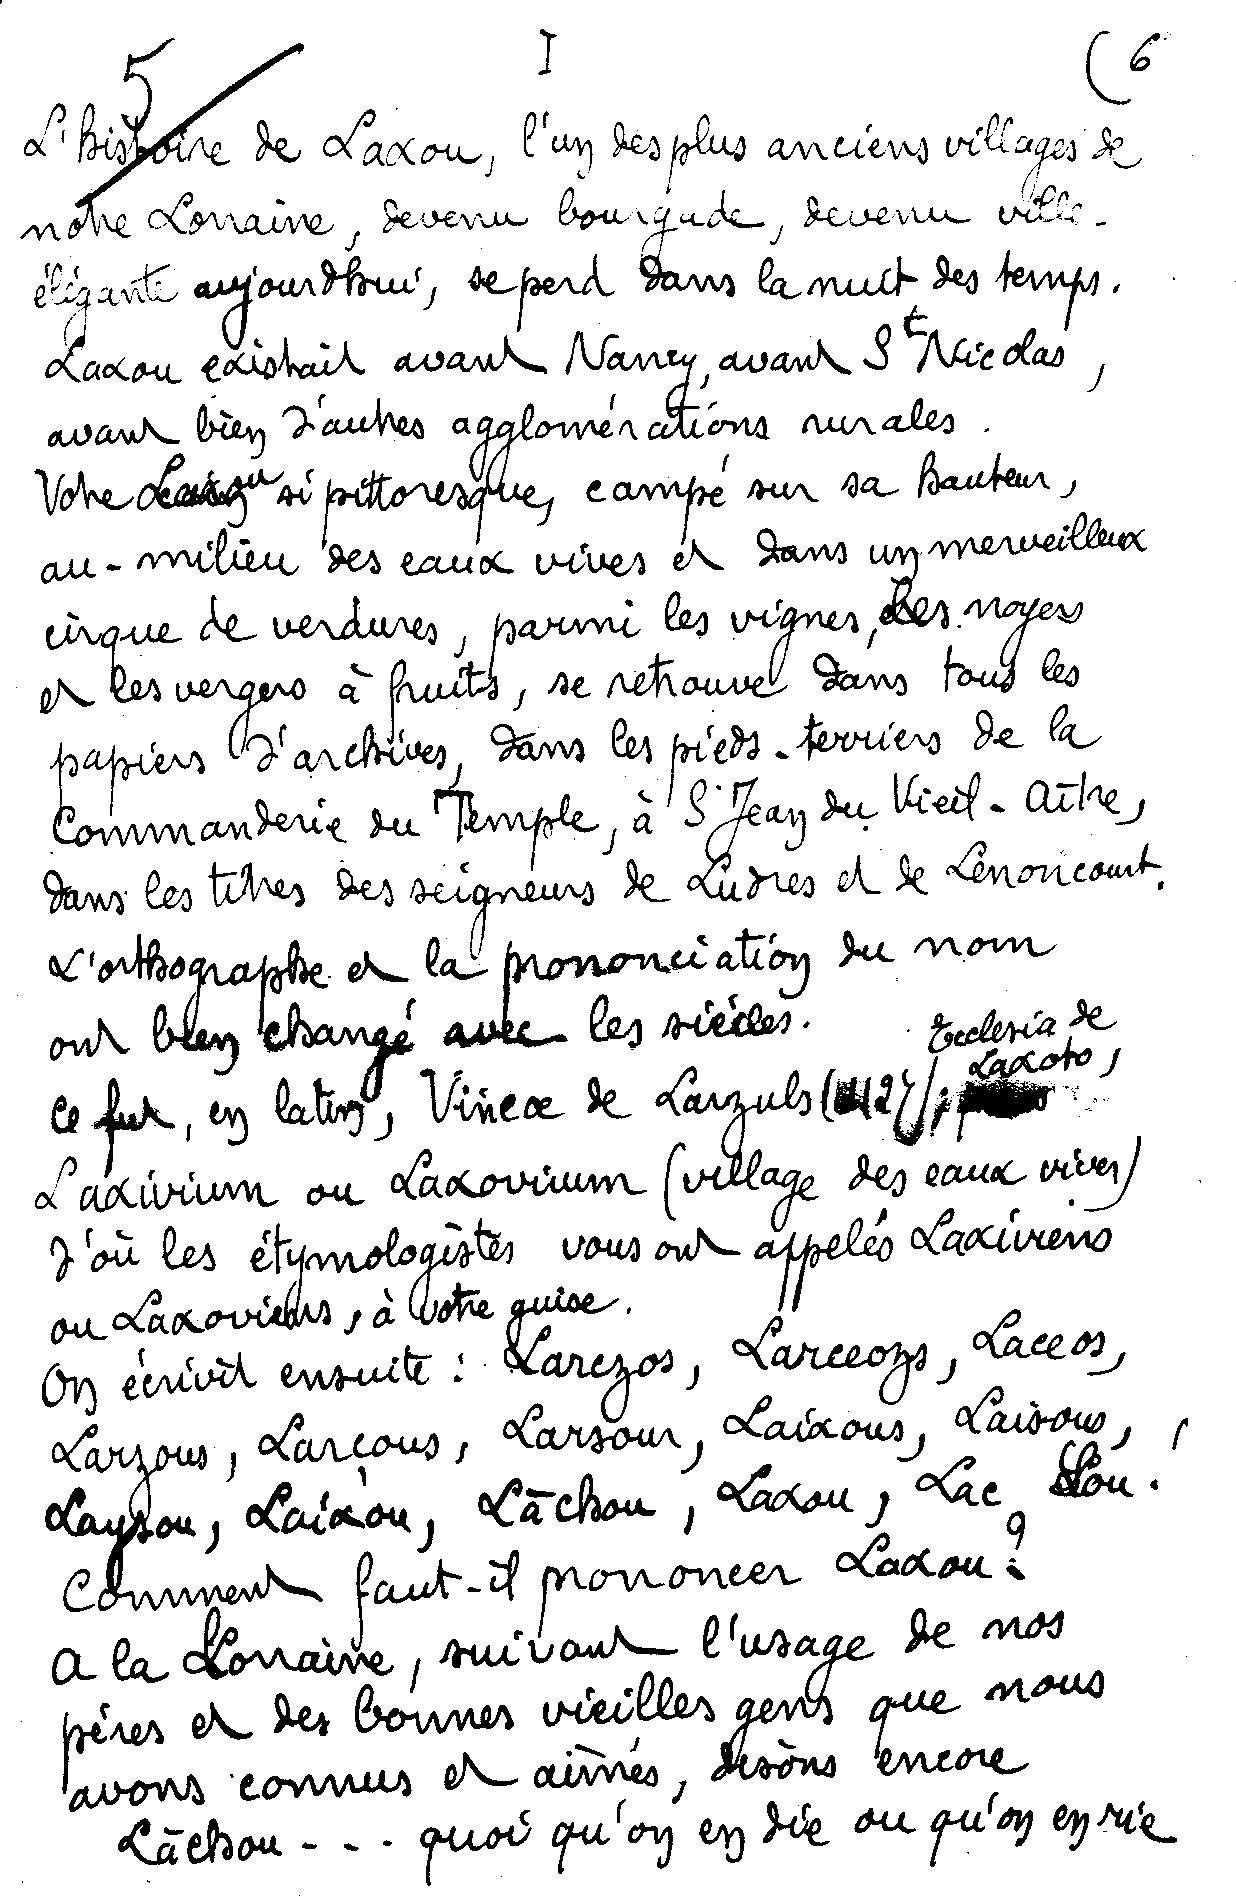 5 I (6
L'histoire de Laxou, l'un des plus anciens villages de
notre Lorraine, devenu bourgade, devenu ville
élégante aujourd'hui, se perd dans la nuit des temps.
Laxou existait avant Nancy, avant St Nicolas,
avant bien d'autres agglomérations rurales.
Votre Laxou si pittoresque, campé sur sa hauteur,
au-milieu des eaux vives et dans un merveilleux
cirque de verdures, parmi les vignes, les noyers
et les vergers à fruits, se retrouve dans tous les
papiers d'archives, dans les pieds-terriers de la
Commanderie du Temple, à St Jean du Vieil-Aître,
dans les titres des seigneurs de Ludres et de Lenoncourt.
L'orthographe et la prononciation du nom
ont bien changé avec les siècles.
Ecclesia de
Laxoto,
Ce fut, en latin, Vineæ de Larzuls (1127),
Laxivium ou Laxovium (village des eaux vives)
d'où les étymologistes vous ont appelés Laxiviens
ou Laxoviens, à votre guise.
On écrivit ensuite : Larczos, Larceozs, Laceos,
Larzous, Larçous, Larsour, Laixous, Laisous,
Laysou, Laixou, Lāchou, Laxou, Lac Lou.
Comment faut-il prononcer Laxou?
A la Lorraine, suivant l'usage de nos
pères et des bonnes vieilles gens que nous
avons connus et aimés, disons encore
Lāchou - - - quoi qu'on en die ou qu'on en rie